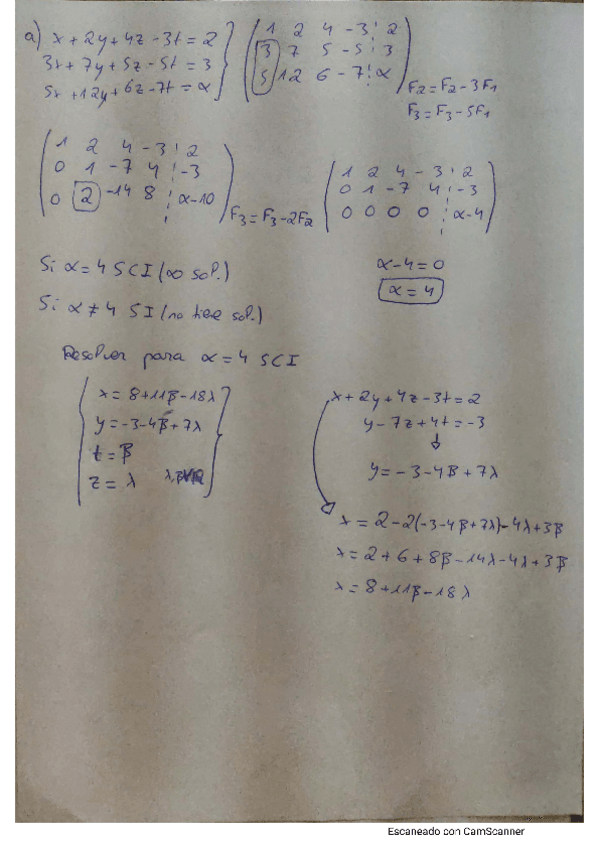 a) x + 2y + 4z - 3t = 2
3x + 7y + 5z - 5t = 3
5x + 12y + 6z - 7t = α
1 2 4 -3 2
3 7 5 -5 3
5 12 6 -7 α
F2 = F2 - 3F1
F3 = F3 - 5F1
1 2 4 -3 2
0 1 -7 4 -3
0 2 -14 8 α-10
F3 = F3 - 2F2
1 2 4 -3 2
0 1 -7 4 -3
0 0 0 0 α-4
Si α = 4 SCI (∞ sol.)
α - 4 = 0
α = 4
Si α ≠ 4 SI (no tiene sol.)
Resolver para α = 4 SCI
x = 8 + 11β - 18λ
y = -3 - 4β + 7λ
t = β
z = λ
x + 2y + 4z - 3t = 2
y - 7z + 4t = -3
y = -3 - 4β + 7λ
x = 2 - 2(-3 - 4β + 7λ) - 4λ + 3β
x = 2 + 6 + 8β - 14λ - 4λ + 3β
x = 8 + 11β - 18λ
Escaneado con CamScanner